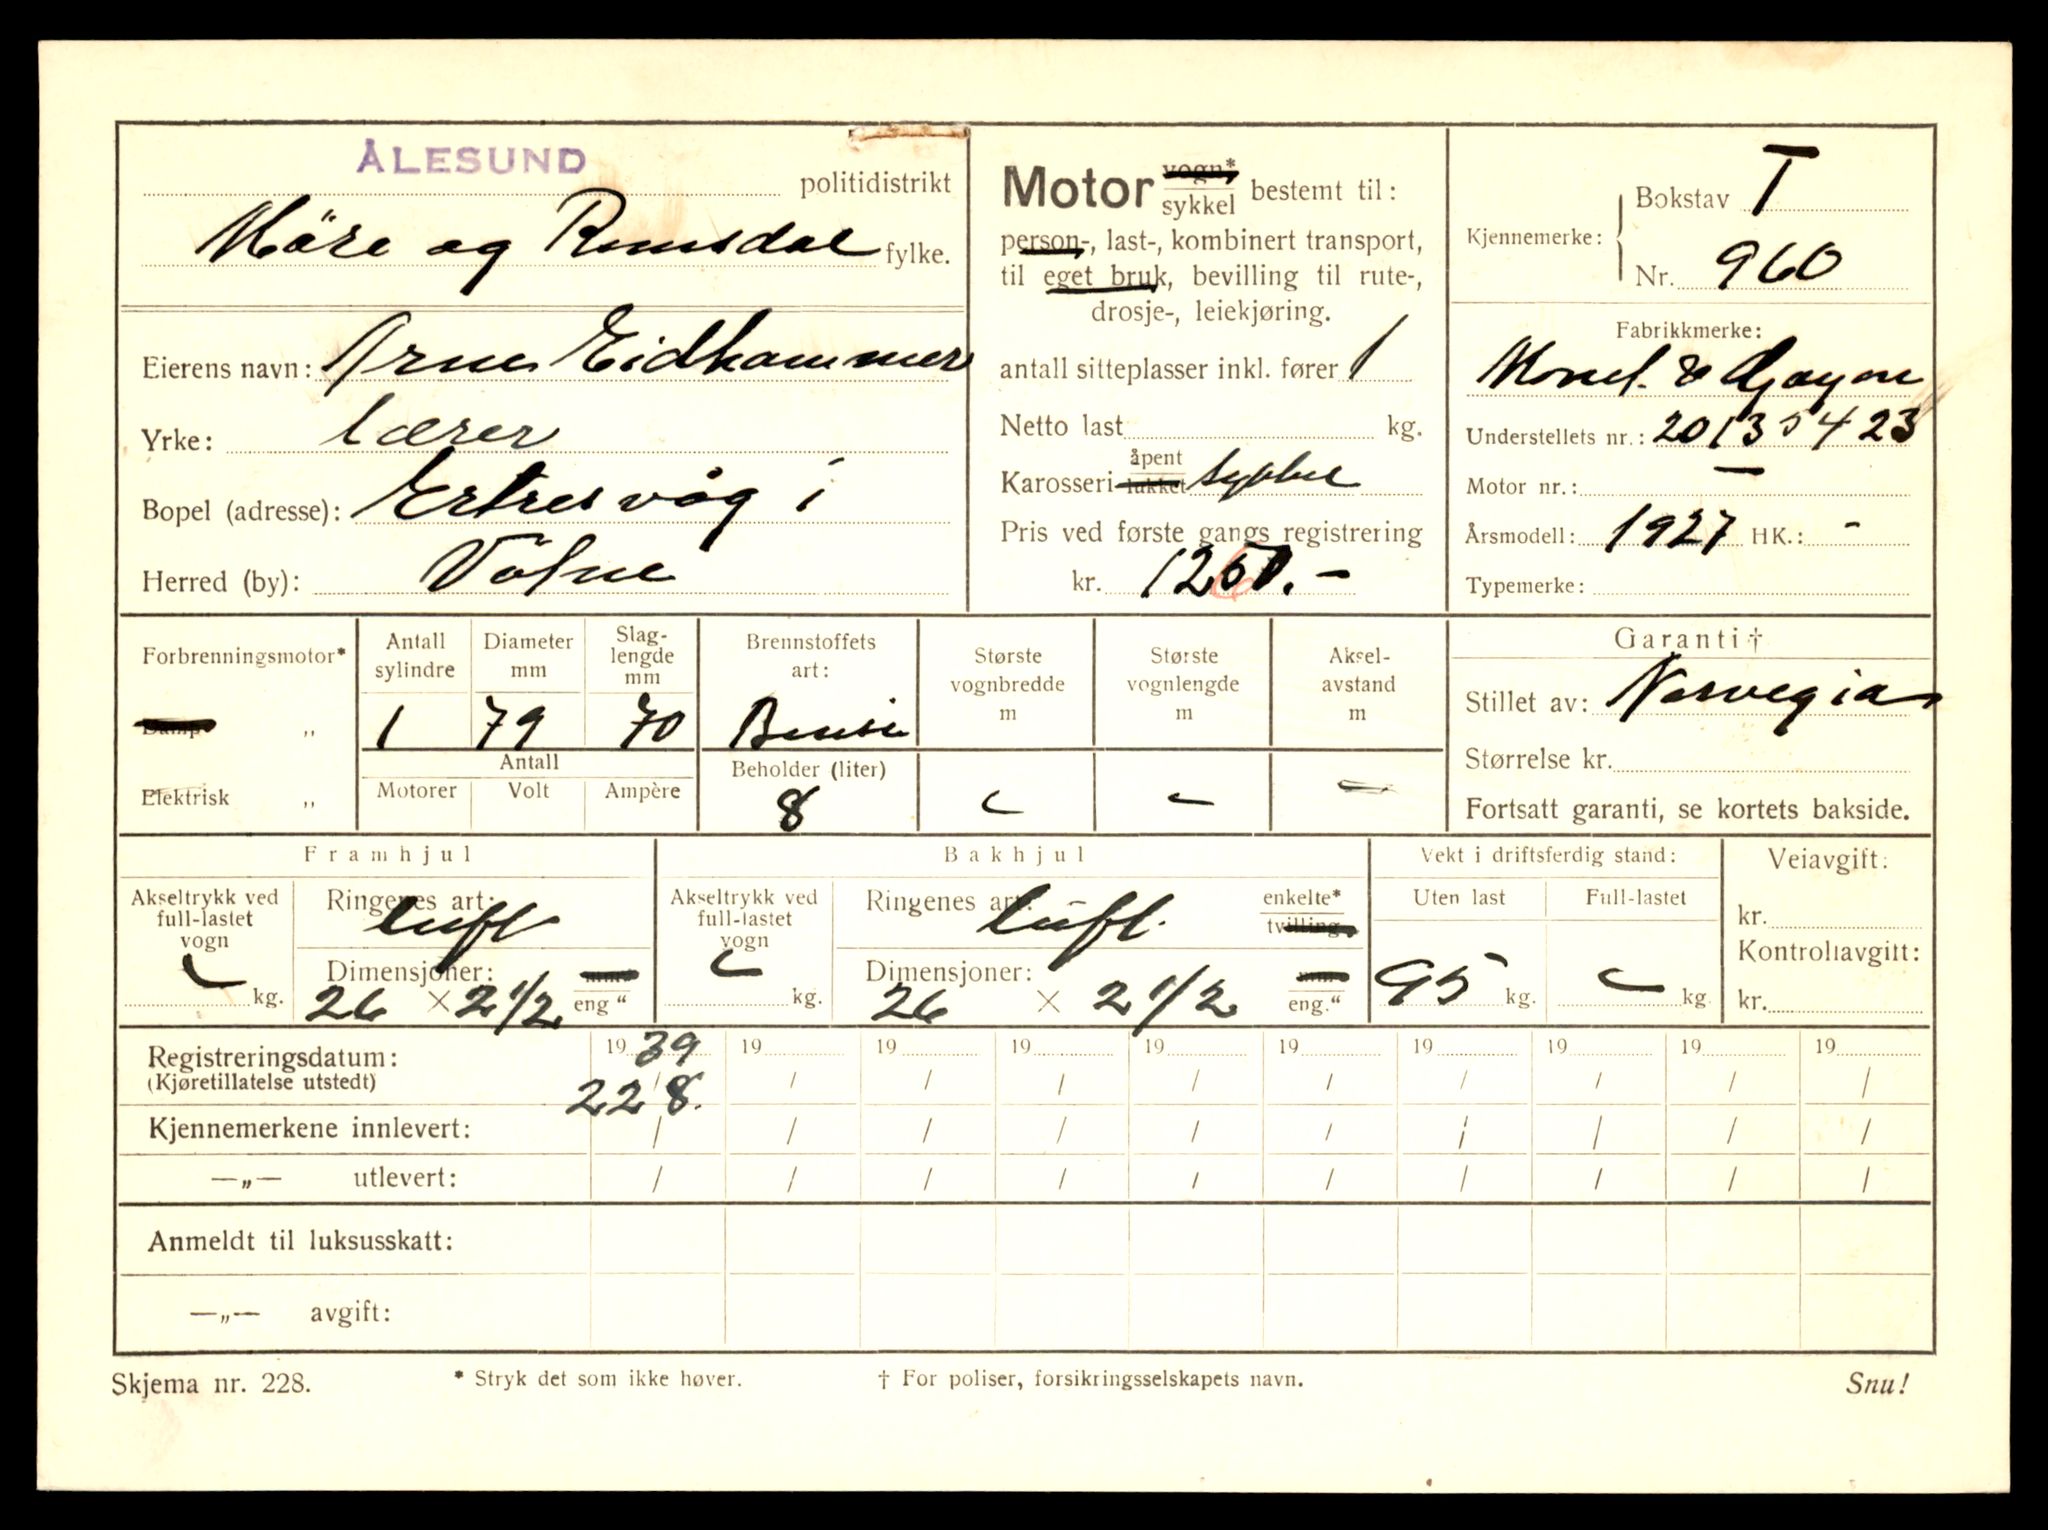 ÅLESUND
politidistrikt
Møre og Romsdal fylke.
Eierens navn: Arne Eidhammer
Yrke: lærer
Bopel (adresse): Ertresvåg i
Herred (by): Våtne
Motor vogn* sykkel bestemt til:
person-, last-, kombinert transport,
til eget bruk, bevilling til rute-,
drosje-, leiekjøring.
antall sitteplasser inkl. fører 1
Netto last kg.
Karosseri åpent lukket sykkel
Pris ved første gangs registrering
kr. 1250.-
Kjennemerke: Bokstav T
Nr. 960
Fabrikkmerke:
Monet & Goyon
Understellets nr.: 20135423
Motor nr.: —
Årsmodell: 1927 HK.: -
Typemerke:
Forbrenningsmotor*
Damp „
Elektrisk „
Antall sylindre
Diameter mm
Slag-lengde mm
1 79 70
Antall
Motorer Volt Ampère
Brennstoffets art:
Bensin
Beholder (liter)
8
Største vognbredde m
-
Største vognlengde m
-
Aksel-avstand m
-
Garanti †
Stillet av: Norvegia
Størrelse kr.
Fortsatt garanti, se kortets bakside.
Framhjul
Akseltrykk ved full-lastet vogn
- kg.
Ringenes art:
luft
Dimensjoner: mm.
26 × 2 1/2 eng "
Bakhjul
Akseltrykk ved full-lastet vogn
- kg.
Ringenes art:
luft.
enkelte*
tvilling
Dimensjoner: mm.
26 × 2 1/2 eng."
Vekt i driftsferdig stand:
Uten last Full-lastet
95 kg. - kg.
Veiavgift:
kr.
Kontrollavgift:
kr.
Registreringsdatum: 19 39 19 19 19 19 19 19 19 19 19
(Kjøretillatelse utstedt) 22/8. / / / / / / / / /
Kjennemerkene innlevert: / / / / / / / / / /
—„— utlevert: / / / / / / / / / /
Anmeldt til luksusskatt:
—„— avgift:
Skjema nr. 228. * Stryk det som ikke høver. † For poliser, forsikringsselskapets navn. Snu!